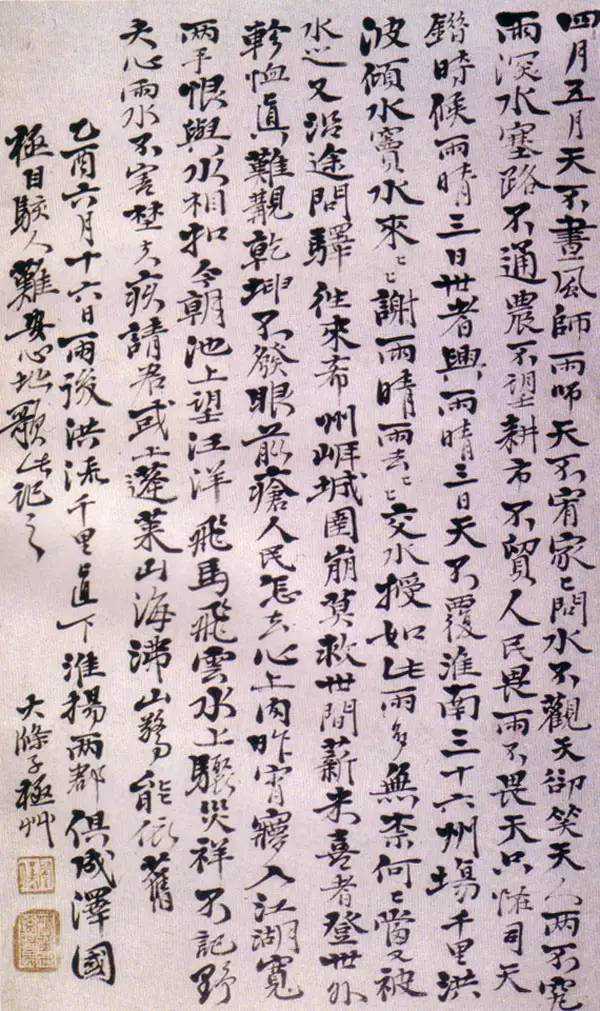 四月五月天不晝風師雨師天不宥家〻問水不觀天卻笑天人兩不究
雨深水塞路不通農不望耕市不貿人民畏雨不畏天只怪司天
時候雨晴三日世者興雨晴三日天不覆淮南三十六州塲千里洪
波傾水竇水來〻謝雨晴雨去〻交水授如此雨多無柰何〻當又被
水 又沿途問驛往來希州崕城圍崩莫救世間薪米喜者登世外
軫恤真難覯乾坤不發眼前瘡人民怎去心上肉昨宵 入江湖寬
兩手恨與水相扣今朝池上望汪洋飛馬飛雲水上驟災祥不記野
夫心雨水不害埜夫疚請君或上蓬萊山海沸山 能依舊
乙酉六月十六日雨後洪流千里直下淮揚兩郡俱成澤國
極目駭人難安心地歌此記之
大滌子極艸